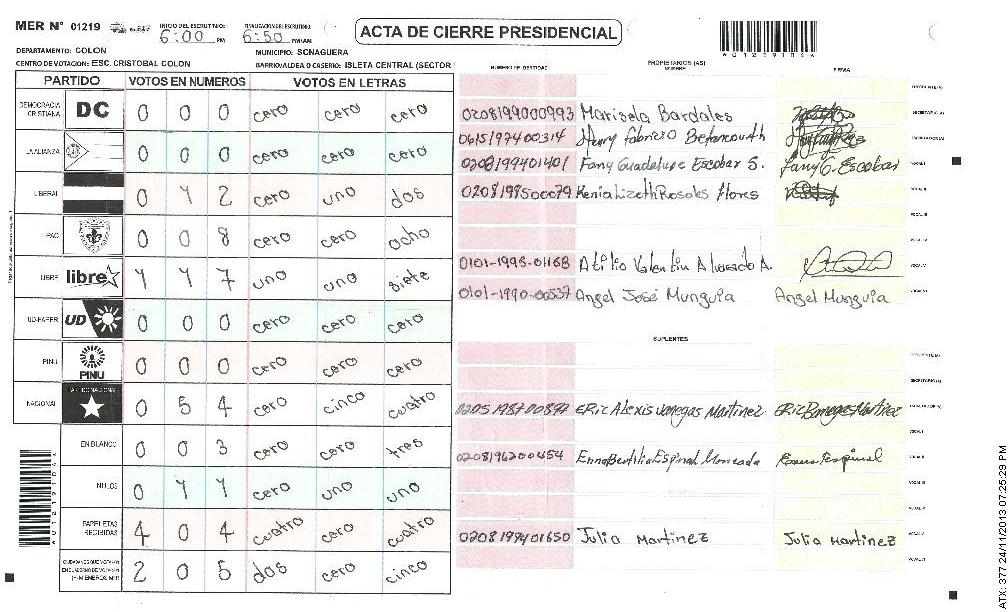 MER N° 01219
INICIO DEL ESCRUTINIO: 6:00 PM
FINALIZACION DEL ESCRUTINIO: 6:50 PM/AM
ACTA DE CIERRE PRESIDENCIAL
DEPARTAMENTO: COLON
MUNICIPIO: SONAGUERA
CENTRO DE VOTACION: ESC. CRISTOBAL COLON
BARRIO/ALDEA O CASERIO: ISLETA CENTRAL (SECTOR
NUMERO DE IDENTIDAD
PROPIETARIOS (AS)
NOMBRE
FIRMA
PARTIDO VOTOS EN NUMEROS VOTOS EN LETRAS
DEMOCRACIA CRISTIANA DC 0 0 0 cero cero cero
LA ALIANZA 0 0 0 cero cero cero
LIBERAL 0 1 2 cero uno dos
PAC 0 0 8 cero cero ocho
LIBRE libre 1 1 7 uno uno siete
UD-FAPER UD 0 0 0 cero cero cero
PINU PINU 0 0 0 cero cero cero
NACIONAL PARTIDO NACIONAL 0 5 4 cero cinco cuatro
EN BLANCO 0 0 3 cero cero tres
NULOS 0 1 1 cero uno uno
PAPELETAS RECIBIDAS 4 0 4 cuatro cero cuatro
2 0 5 dos cero cinco
0208199000993 Marisela Bardales
0615197400314 Henry fabricio Betancourth
0208199401401 Fany Guadalupe Escobar S. Fany G. Escobar
0208199500079 Kenia Lizeth Rosales flores
0101-1998-01168 Atilio Valentin Alvarado A.
0101-1990-00537 Angel José Munguia Angel Munguia
SUPLENTES
0205198700877 Eric Alexis Vanegas Martinez
0208196200454 Enna Bertilia Espinal Moncada
0208199401650 Julia Martinez Julia Martinez
A01219100A
ATX: 377.24/11/2013 07:25:29 PM